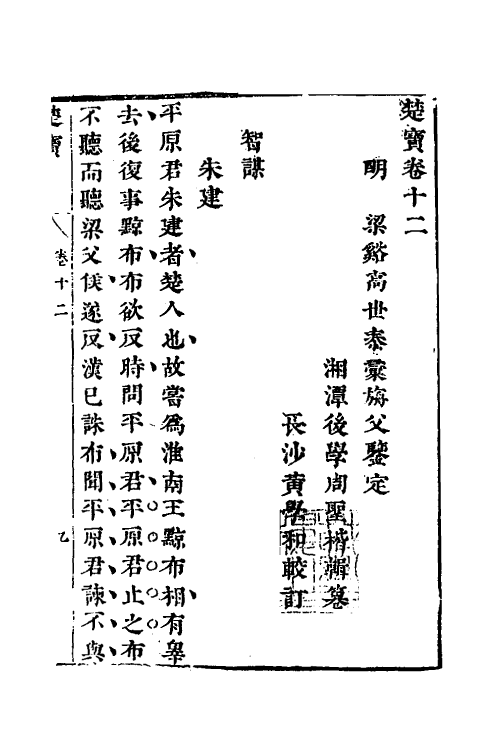 楚寶卷十二
明　梁谿高世泰彙旃父鑒定
湘潭後學周聖楷輯纂
長沙黃學和較訂
智謀
朱建
平原君朱建者楚人也故嘗爲淮南王黥布相有辠
去後復事黥布布欲反時問平原君平原君止之布
不聽而聽梁父侯遂反漢已誅布聞平原君諫不與
楚寶
卷十二
乙